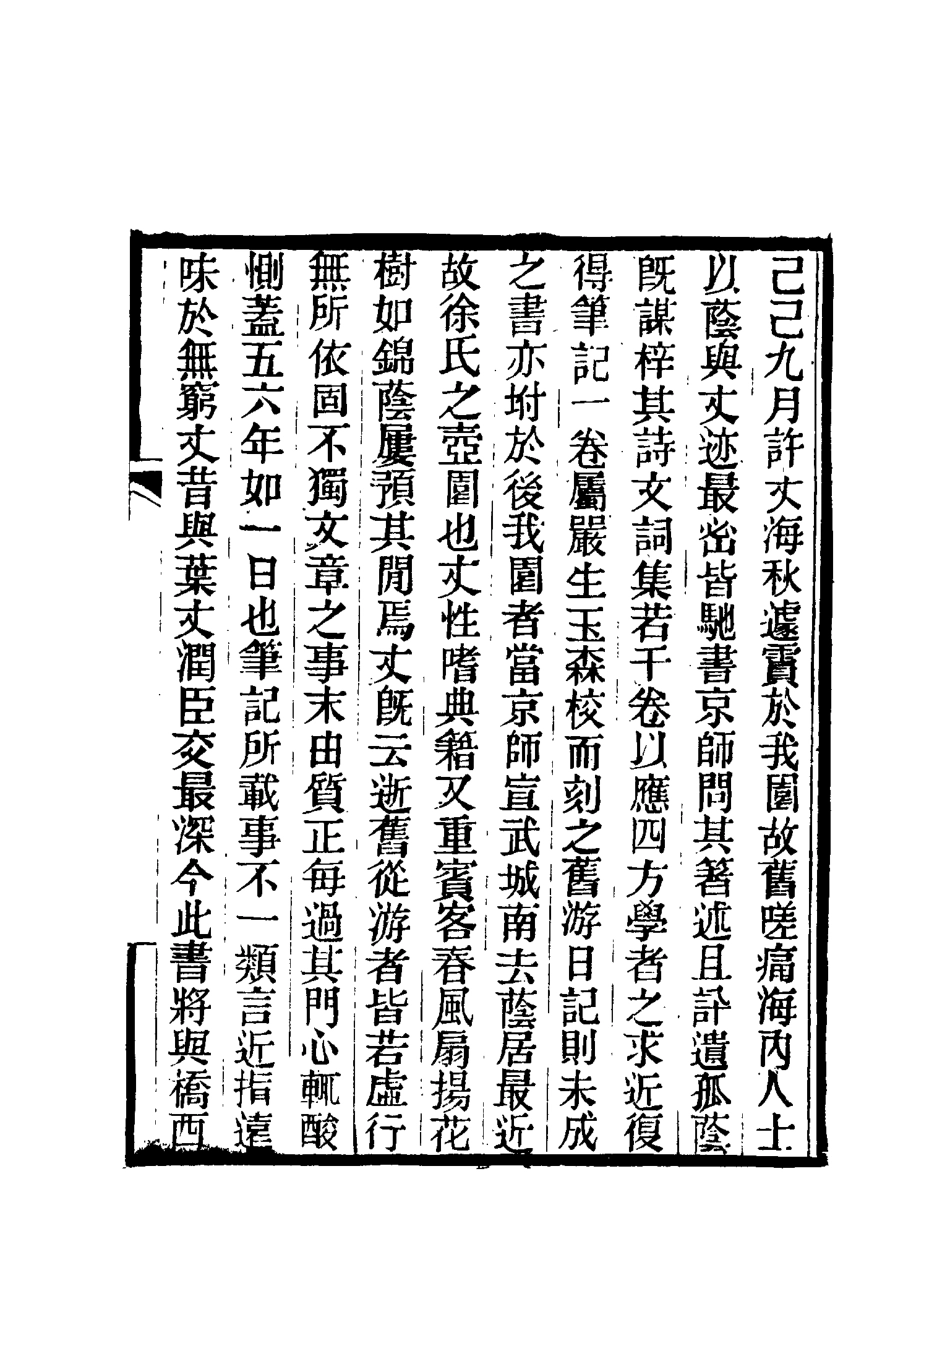 己巳九月許丈海秋遽賈於我園故舊嗟痛海內人士
以蔭與丈迹最密皆馳書京師問其著述且訃遺孤蔭
旣謀梓其詩文詞集若干卷以應四方學者之求近復
得筆記一卷屬嚴生玉森校而刻之舊游日記則未成
之書亦坿於後我園者當京師宣武城南去蔭居最近
故徐氏之壺園也丈性嗜典籍又重賓客春風扇揚花
樹如錦蔭屢預其閒焉丈旣云逝舊從游者皆若虛行
無所依固不獨文章之事末由質正每過其門心輒酸
惻蓋五六年如一日也筆記所載事不一類言近指遠
味於無窮丈昔與葉丈潤臣交最深今此書將與橋西